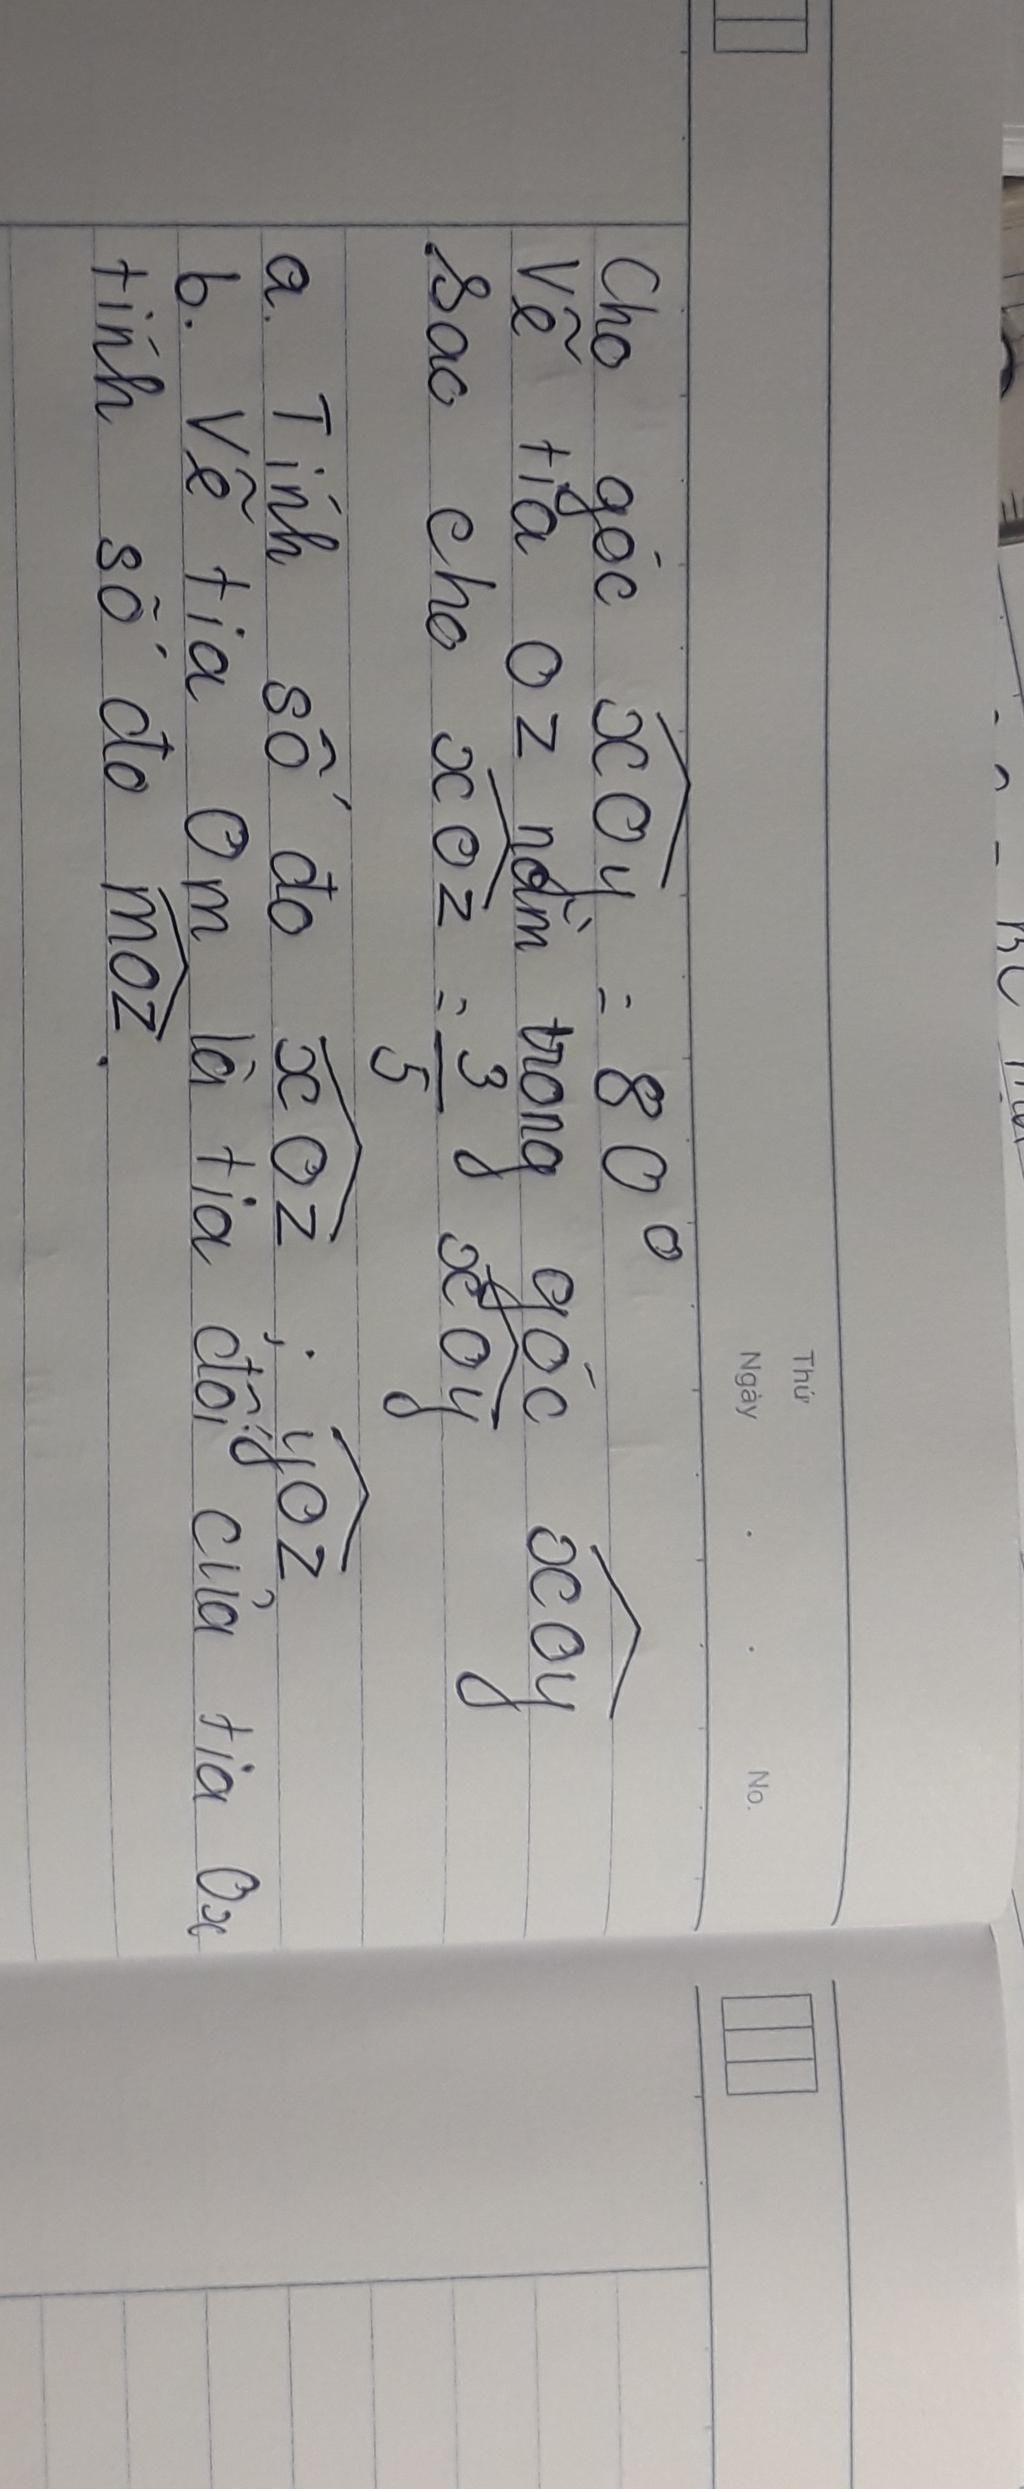 Thứ
Ngày No.
Cho góc xOy = 80°
Vẽ tia Oz nằm trong góc xOy
Sao cho xOz = 3/5 xOy
a. Tính số đo xOz ; yOz
b. Vẽ tia Om là tia đối của tia Ox
tính số đo mOz.